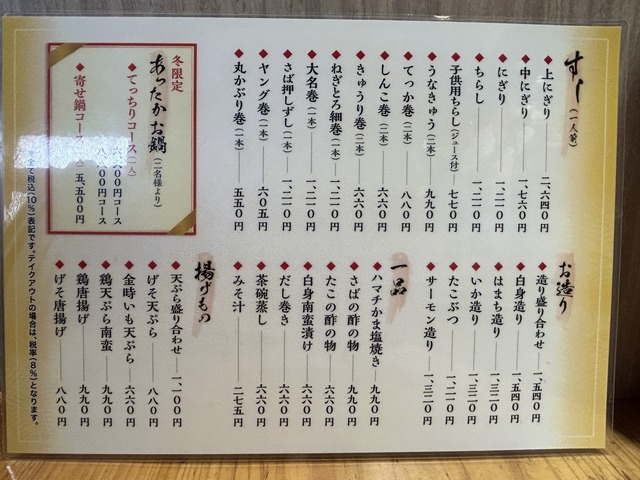 すし(一人前)
◆上にぎり 二、六四〇円
◆中にぎり 一、七六〇円
◆にぎり 一、二一〇円
◆ちらし 一、二一〇円
◆子供用ちらし(ジュース付) 七七〇円
◆うなきゅう(二本) 九九〇円
◆てっか巻(二本) 八八〇円
◆しんこ巻(二本) 六六〇円
◆きゅうり巻(二本) 六六〇円
◆ねぎとろ細巻(二本) 一、二一〇円
◆大名巻(一本) 一、二一〇円
◆さば押しずし(一本) 一、二一〇円
◆ヤング巻(一本) 六〇五円
◆丸かぶり巻(一本) 五五〇円
冬限定
あったかお鍋(二名様より)
◆てっちりコース(一人)
六、六〇〇円コース
八、八〇〇円コース
◆寄せ鍋コース 五、五〇〇円
お造り
◆造り盛り合わせ 一、五四〇円
◆白身造り 一、五四〇円
◆はまち造り 一、三二〇円
◆いか造り 一、三二〇円
◆たこぶつ 一、三二〇円
◆サーモン造り 一、三二〇円
一品
◆ハマチかま塩焼き 九九〇円
◆さばの酢の物 六六〇円
◆たこの酢の物 六六〇円
◆白身南蛮漬け 六六〇円
◆だし巻き 六六〇円
◆茶碗蒸し 六六〇円
◆みそ汁 二七五円
揚げもの
◆天ぷら盛り合わせ 一、一〇〇円
◆げそ天ぷら 八八〇円
◆金時いも天ぷら 六六〇円
◆鶏天ぷら南蛮 九九〇円
◆鶏唐揚げ 九九〇円
◆げそ唐揚げ 八八〇円
全て税込(10%)表記です。テイクアウトの場合は、税率(8%)となります。